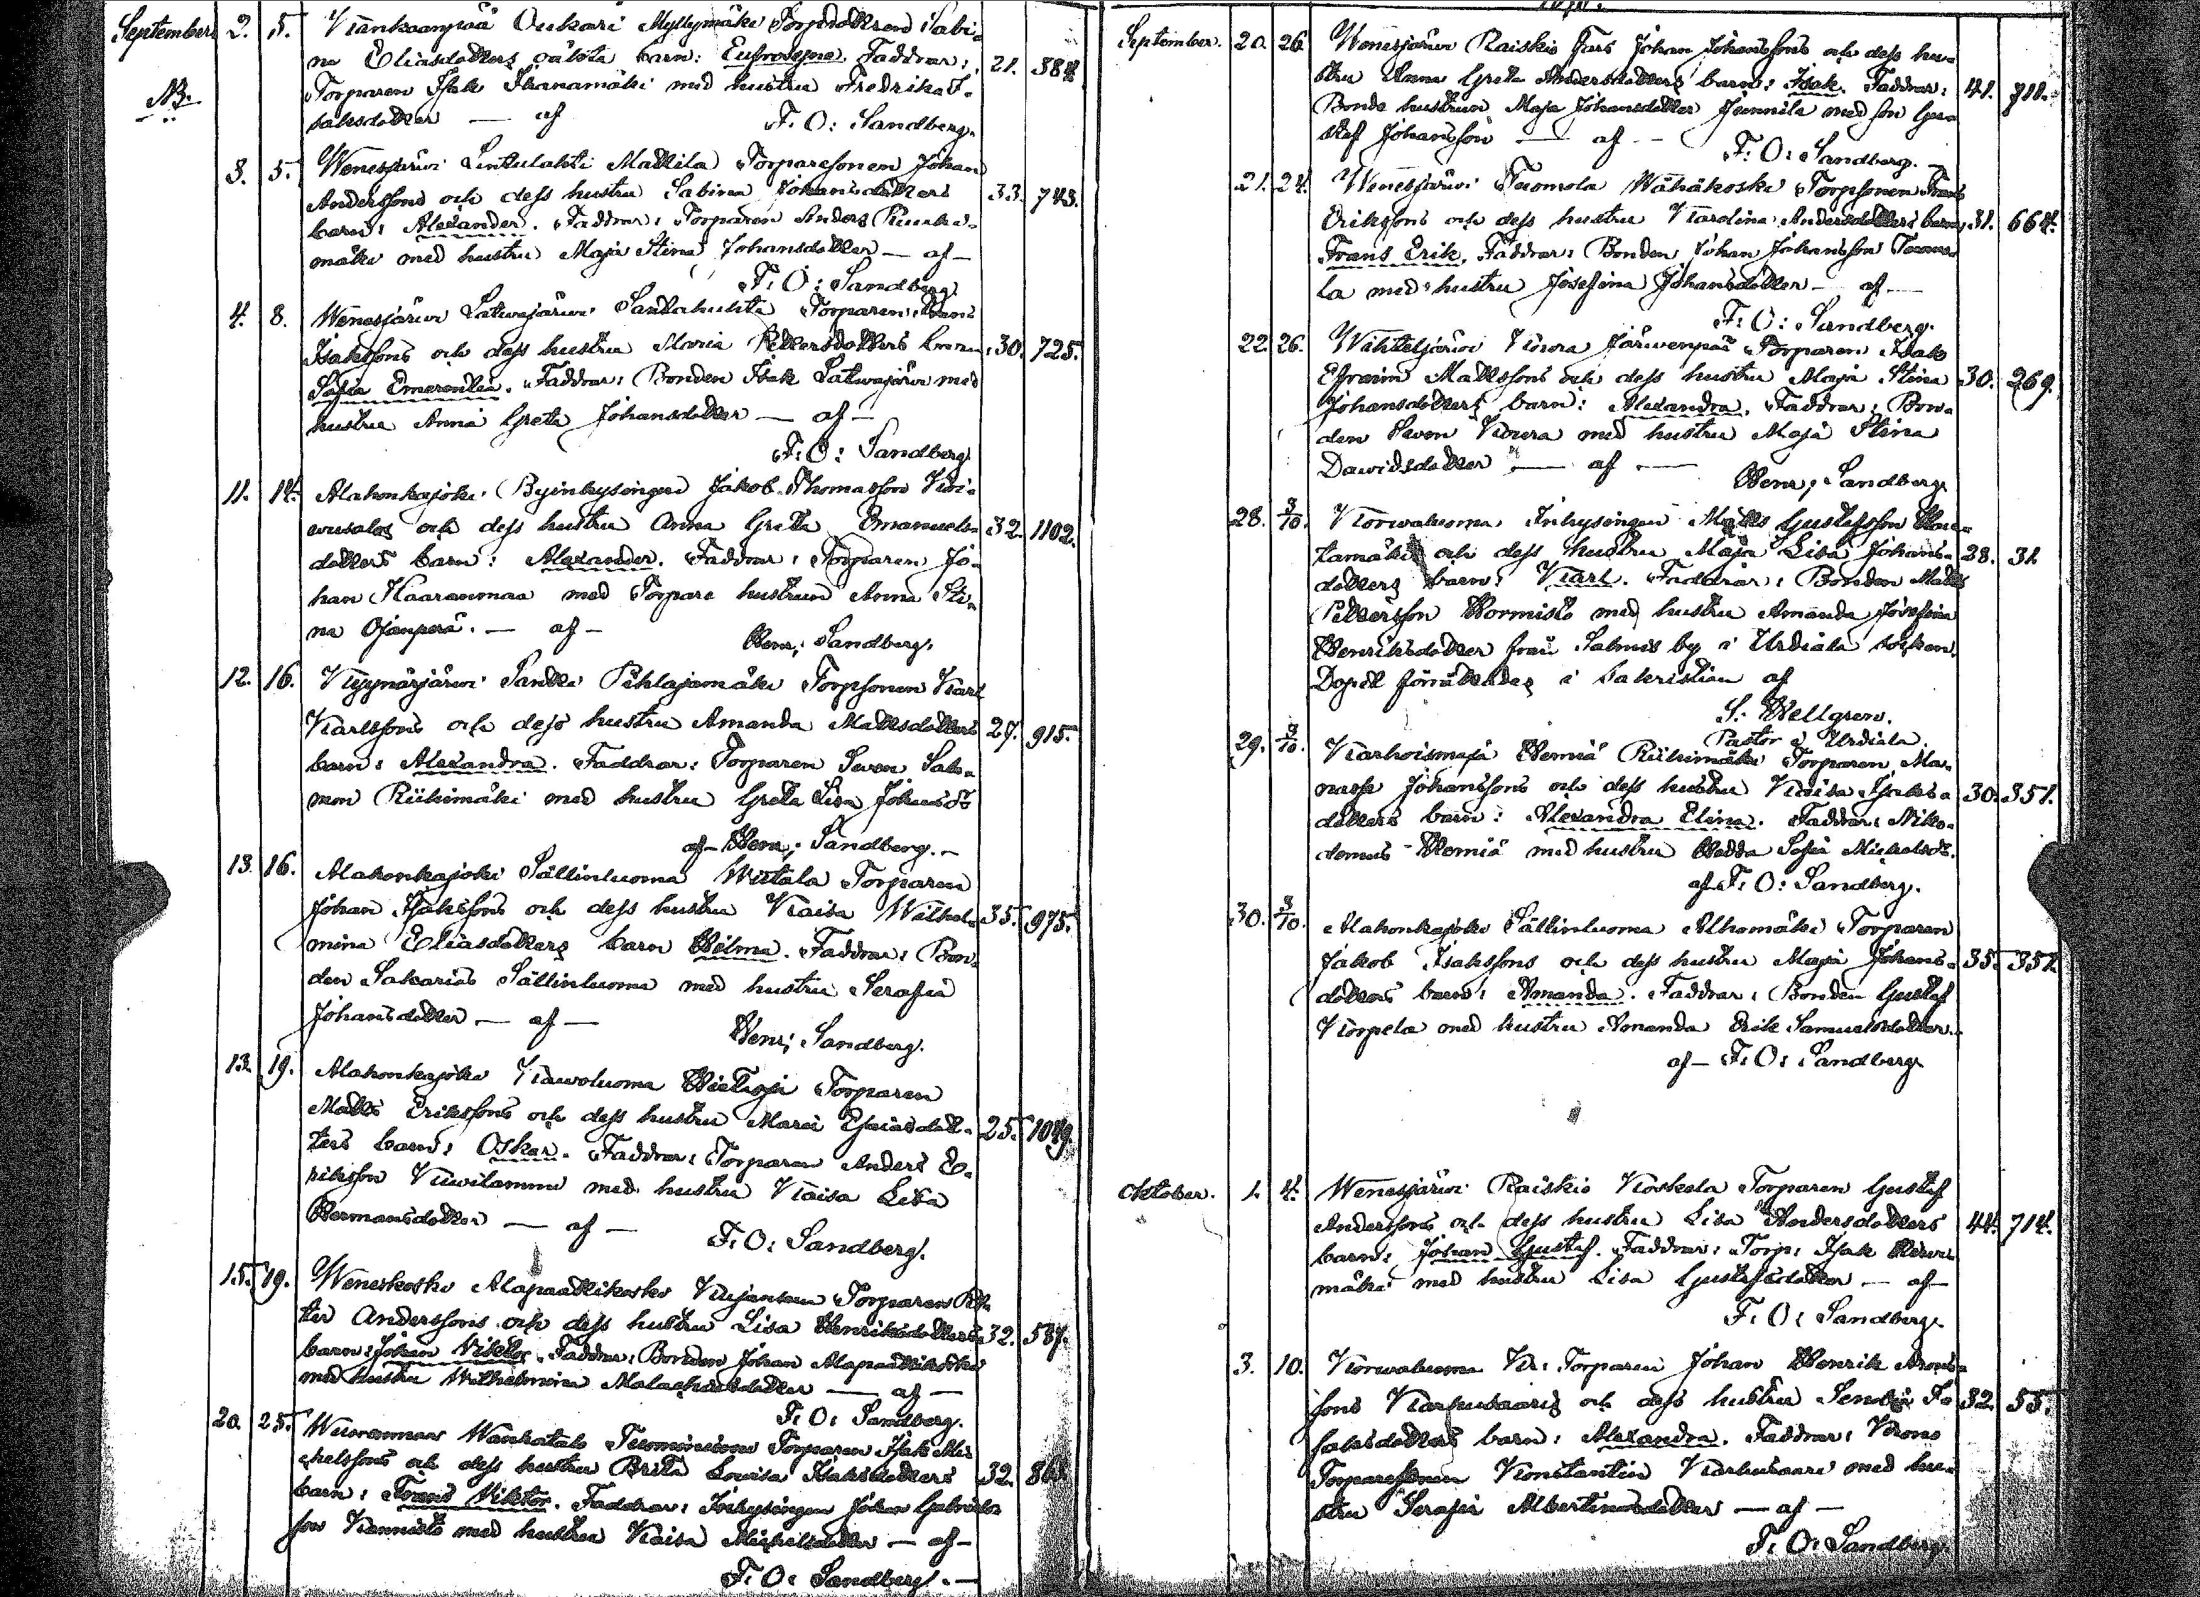 September 2. 5. Kankaanpää Onkari Myllymäki Torpdottren Sabi-
na Eliasdotters oäkta barn: Eufrosyne. Faddrar: 21. 384.
NB. Torparen Isak Ikanamäki med hustru Fredrika I-
saksdotter — af F. O: Sandberg.
3. 5. Wenesjärwi Lintulahti Mattila Torparesonen Johan
Anderssons och dess hustru Sabina Johansdotters 33. 743.
barn: Alexander. Faddrar: Torparen Anders
mäki med hustru Maja Stina Johansdotter — af —
F. O: Sandberg
4. 8. Wenesjärwi Latwajärwi Santahuhta Torparen Frans
Isakssons och dess hustru Maria Pettersdotters barn: 30. 725.
Sofia Emerentia. Faddrar: Bonden Isak Latwajärwi med
hustru Anna Greta Johansdotter — af —
F. O: Sandberg
11. 14. Alahonkajoki Byinhysingen Jakob Thomasson Kiwi-
wusalos och dess hustru Anna Greta Emanuels- 32. 1102.
dotters barn: Alexander. Faddrar: Torparen Jo-
han Haaranmaa med Torpare hustrun Anna Sti-
na Ojanperä. — af — Henr; Sandberg.
12. 16. Kyynärjärwi Santti Pihlajamäki Torpsonen Karl
Karlssons och dess hustru Amanda Mattsdotters 27. 915.
barn: Alexandra. Faddrar: Torparen Sven Salo-
mon Riihimäki med hustru Greta Lisa Johansdr
af — Henr; Sandberg. —
13. 16. Alahonkajoki Sällinluoma Wiitala Torparen
Johan Isakssons och dess hustru Kaisa Wilhel- 35. 975.
mina Eliasdotters barn Hilma. Faddrar: Bon-
den Sakarias Sällinluoma med hustru Serafia
Johansdotter — af —
Henr; Sandberg.
13. 19. Alahonkajoki Kawoluoma Hietaoja Torparen
Matts Erikssons och dess hustru Maria Esaiasdott- 25. 1049.
ters barn: Oskar. Faddrar: Torparen Anders E-
riksson Kiwilammi med hustru Kaisa Lisa
Hermansdotter — af —
F. O: Sandberg.
15. 19. Weneskoski Alapaattikoski Kujansuu Torparen Pet-
ter Anderssons och dess hustru Lisa Henriksdotters 32. 587.
barn: Johan Viktor. Faddrar: Bonden Johan Alapaattikoski
med hustru Wilhelmina Malachiasdotter — af —
F. O: Sandberg.
20. 25. Wanhatalo Torparen Isak Mi-
chelssons och dess hustru Brita Lowisa Isaksdotters 32.
barn: Frans Viktor. Faddrar: Inhysingen Johan Gabriels-
son Kannisto med hustru Kaisa Michelsdotter — af —
F. O: Sandberg. —
September. 20. 26. Wenesjärwi Raiskio Fars Johan Johanssons och dess hu-
stru Anna Greta Andersdotters barn: Isak. Faddrar: 41. 711.
Bonde hustrun Maja Johansdotter Junnila med son Gu-
staf Johansson — af — F. O: Sandberg. —
21. 24. Wenesjärwi Tuomola Wähäkoski Torpsonen Frans
Erikssons och dess hustru Karolina Andersdotters barn: 31. 664.
Frans Erik. Faddrar: Bonden Johan Johansson Tuomo-
la med hustru Josefina Johansdotter — af —
F. O: Sandberg.
22. 26. Wihteljärwi Koura Järwenpää Torparen Isak
Efraim Mattssons och dess hustru Maja Stina 30. 269.
Johansdotters barn: Alexandra. Faddrar: Bon-
den Sven Koura med hustru Maja Stina
Dawidsdotter — af —
Henr; Sandberg
28. 3/10. Korwaluoma Inhysingen Matts Gustafsson Hau-
tamäki och dess hustru Maja Lisa Johans- 28. 31.
dotters barn: Karl. Faddrar: Bonden Matts
Pettersson Hormisto med hustru Amanda Josefina
Henriksdotter från Salmis by i Urdiala socken.
Dopet förrättades i Sakristian af
S. Hellgren.
Pastor i Urdiala.
29. 3/10. Karhoismaja Hemiä Riihimäki Torparen Ma-
nasse Johanssons och dess hustru Kaisa Isaks- 30. 351.
dotters barn: Alexandra Elina. Faddrar: Niko-
demus Hemiä med hustru Hedda Sofia Michelsdr.
af F. O: Sandberg.
30. 3/10. Alahonkajoki Sällinluoma Alhomäki Torparen
Jakob Isakssons och dess hustru Maja Johans- 35. 357.
dotters barn: Amanda. Faddrar: Bonden Gustaf
Korpela med hustru Amanda Erik Samuelsdotter.
af — F. O: Sandberg
Oktober. 1. 4. Wenesjärwi Raiskio Koskela Torparen Gustaf
Anderssons och dess hustru Lisa Andersdotters 44. 714.
barn: Johan Gustaf. Faddrar: Torp: Isak
mäki med hustru Lisa Gustafsdotter — af —
F. O: Sandberg.
3. 10. Korwaluoma Kr: Torparen Johan Henrik Arons-
sons Karhusaaris och dess hustru Senia I- 32. 55.
saksdotters barn: Alexandra. Faddrar: Krono
Torparesonen Konstantin Karhusaari med hu-
stru Serafia Albertinasdotter — af —
F. O: Sandberg.